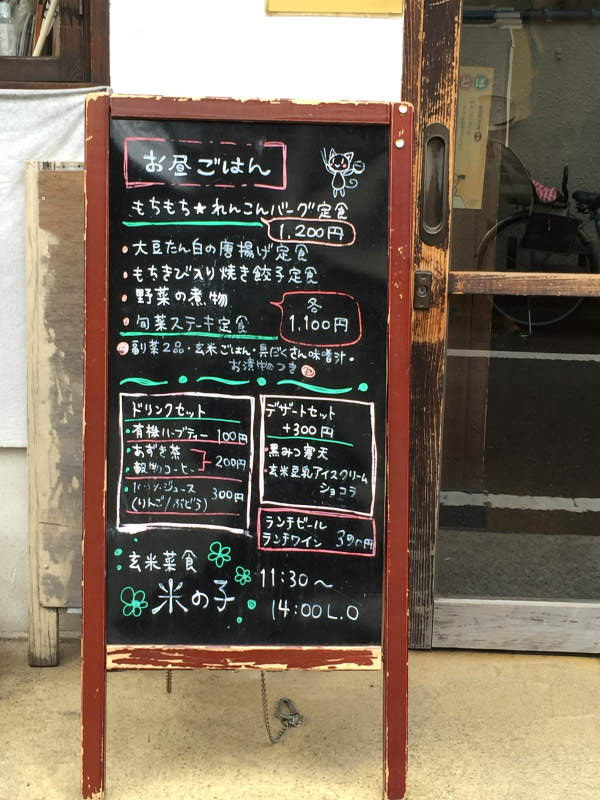 お昼ごはん
もちもち★れんこんバーグ定食
1,200円
・大豆たん白の唐揚げ定食
・もちきび入り焼き餃子定食
・野菜の煮物
・旬菜ステーキ定食
各
1,100円
副菜2品・玄米ごはん・具だくさん味噌汁・
お漬物つき
ドリンクセット
・有機ハーブティー 100円
・あずき茶
・穀物コーヒー 200円
ジュース
(りんご/ぶどう) 300円
デザートセット
+300円
・黒みつ寒天
・玄米豆乳アイスクリーム
ショコラ
ランチビール
ランチワイン 390円
玄米菜食
米の子
11:30～
14:00 L.O
とば